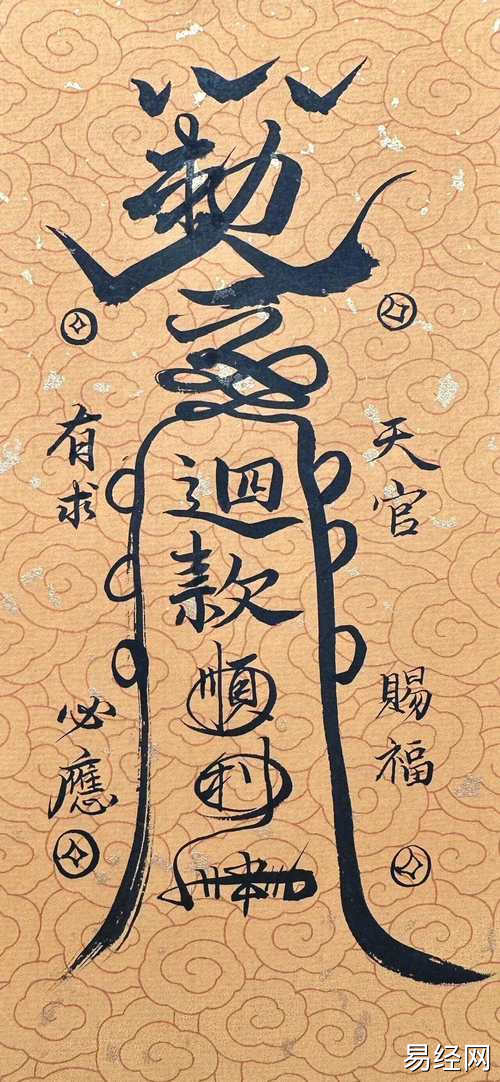 勅
天官賜福
迴款順利
有求必應
易经网